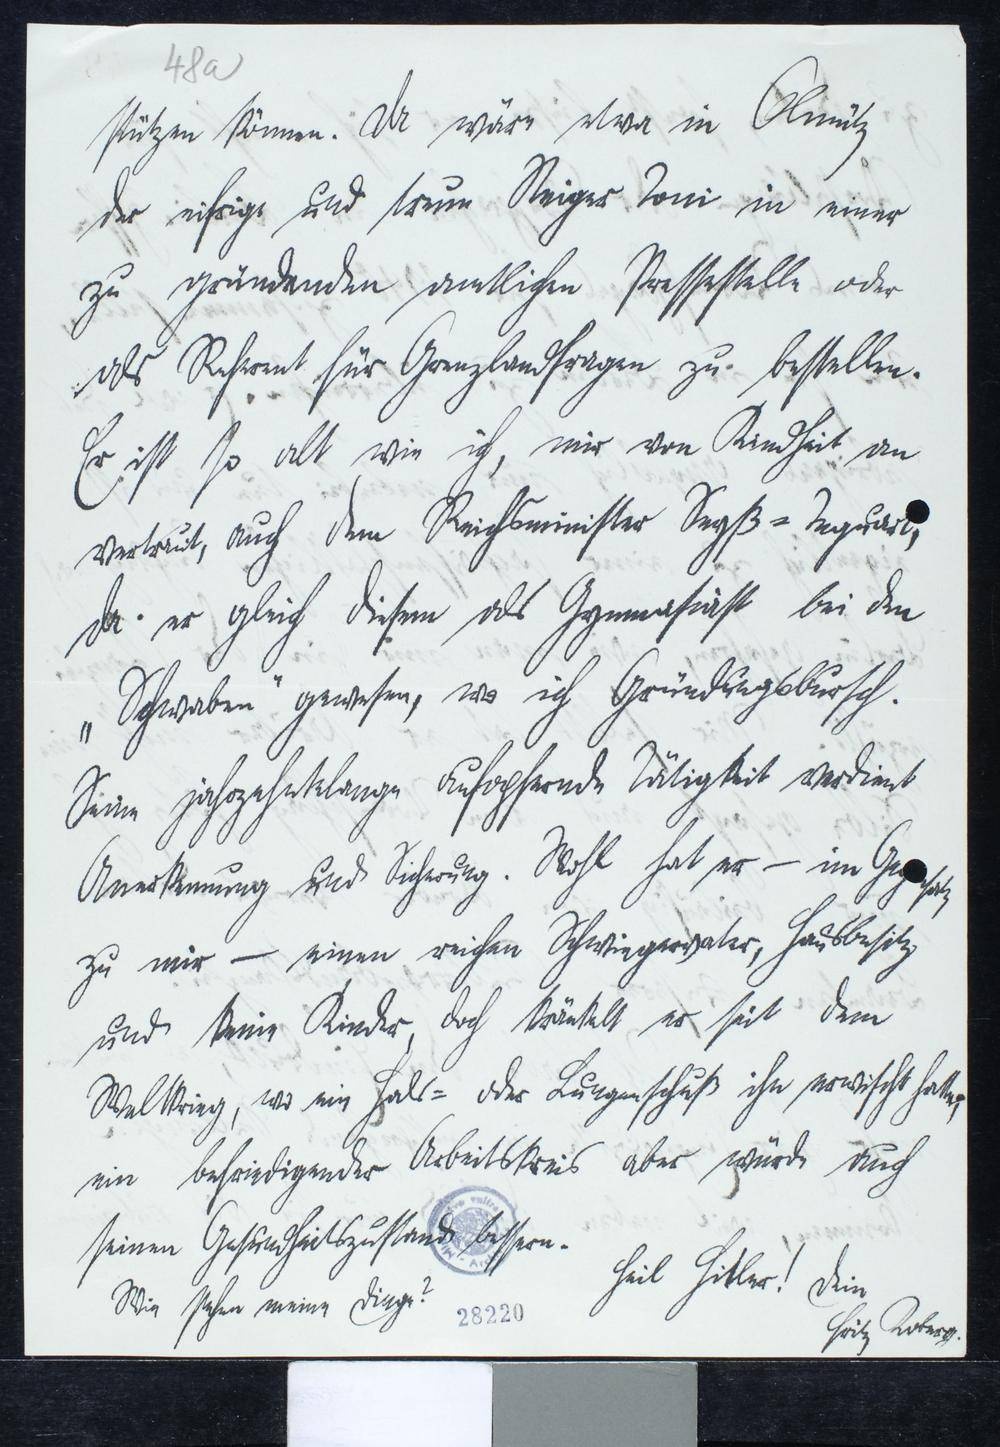 48a
stützen können. Da wäre etwa in Olmütz
der eifrige und treue Steiger Toni in einer
zu gründenden amtlichen Pressestelle oder
als Referent für Grenzlandfragen zu bestellen.
Er ist so alt wie ich, mir von Kindheit an
vertraut, auch dem Reichsminister Seyß=Inquart,
da er gleich diesem als Gymnasiast bei den
„Schwaben" gewesen, wo ich Gründungsbursch.
Seine jahrzehntelange aufopfernde Tätigkeit verdient
Anerkennung und Sicherung. Wohl hat er — im Gegensatz
zu mir — einen reichen Schwiegervater, Hausbesitz
und keine Kinder, doch kränkelt er seit dem
Weltkrieg, wo ein Hals= oder Lungenschuß ihn erwischt hatte;
ein befriedigender Arbeitskreis aber würde auch
seinen Gesundheitszustand bessern.
Heil Hitler! Dein
Wie stehen meine Dinge?
28220
Fritz